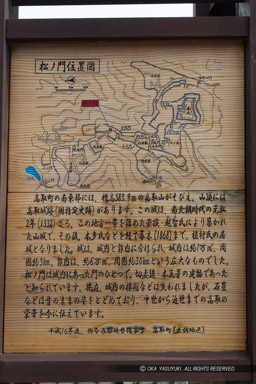 松ノ門位置図
高取町の南東部には、標高583.9mの高取山がそびえ、山頂には
高取城跡(国指定史跡)があります。この城は、南北朝時代の元弘
2年(1332)ごろ、この地方一帯を治めた豪族・越智氏により築かれ
た山城で、その後、本多氏などを経て幕末(1868)まで、植村氏の居
城となりました。城は、城内と郭内に分けられ、城内は約1万㎡、周
囲約3km、郭内は、約6万㎡、周囲約30kmという広大なものでした。
松ノ門は城内にあった門のひとつで、切妻造・本瓦葺の建物であった
と知られています。現在、城内の建物などは失われましたが、石垣
などは昔のままの姿をとどめており、中世から近世までの高取の
栄華を今に伝えています。
平成16年度
高取町
© OKA YASUYUKI. ALL RIGHTS RESERVED